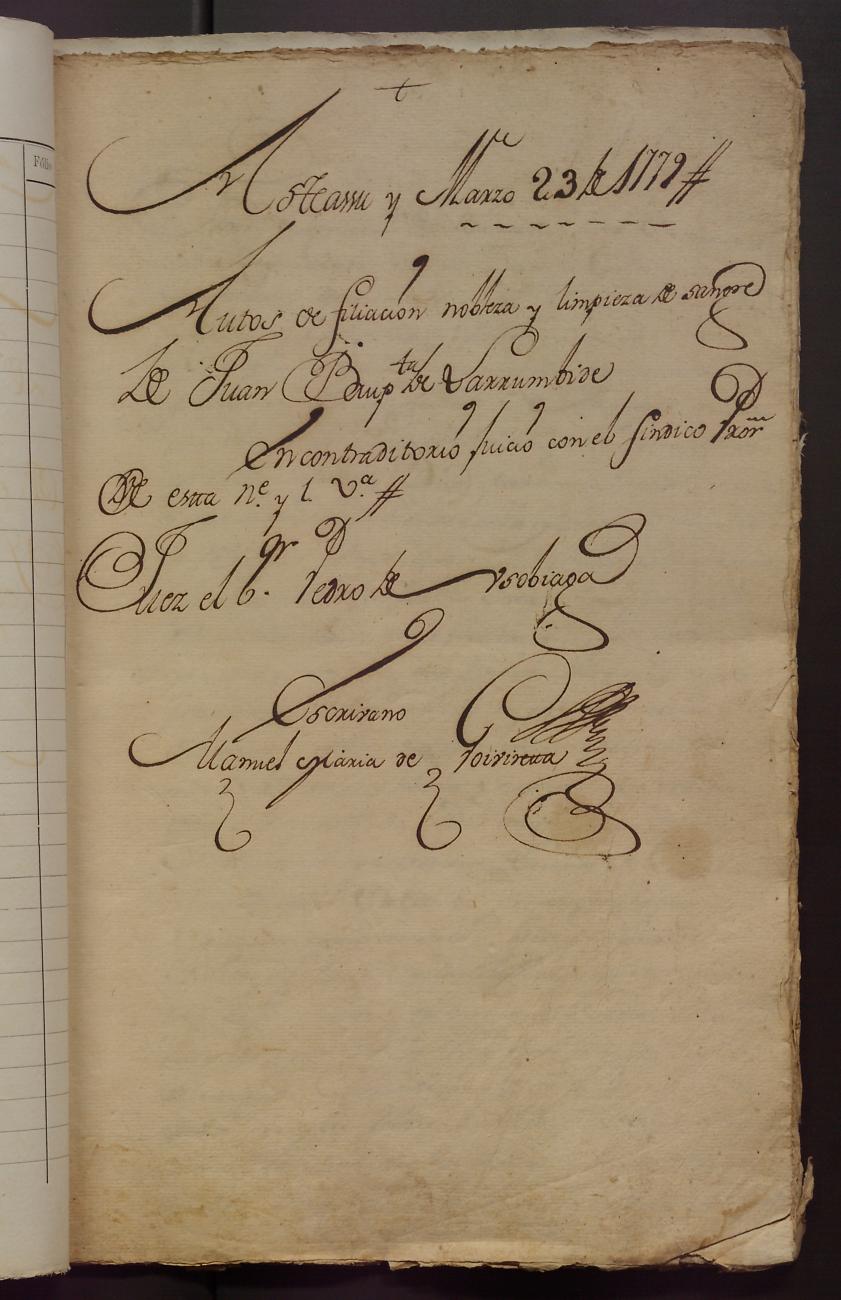 +
Asteassu y Marzo 23 de 1779
Autos de filiacion nobleza y limpieza de sangre
de Juan Baupta de Larrumbide
En contraditorio juicio con el sindico Pror
de esta Ne. y L. Va.
Juez el Sr. Pedro de
Escrivano
Manuel Maria de